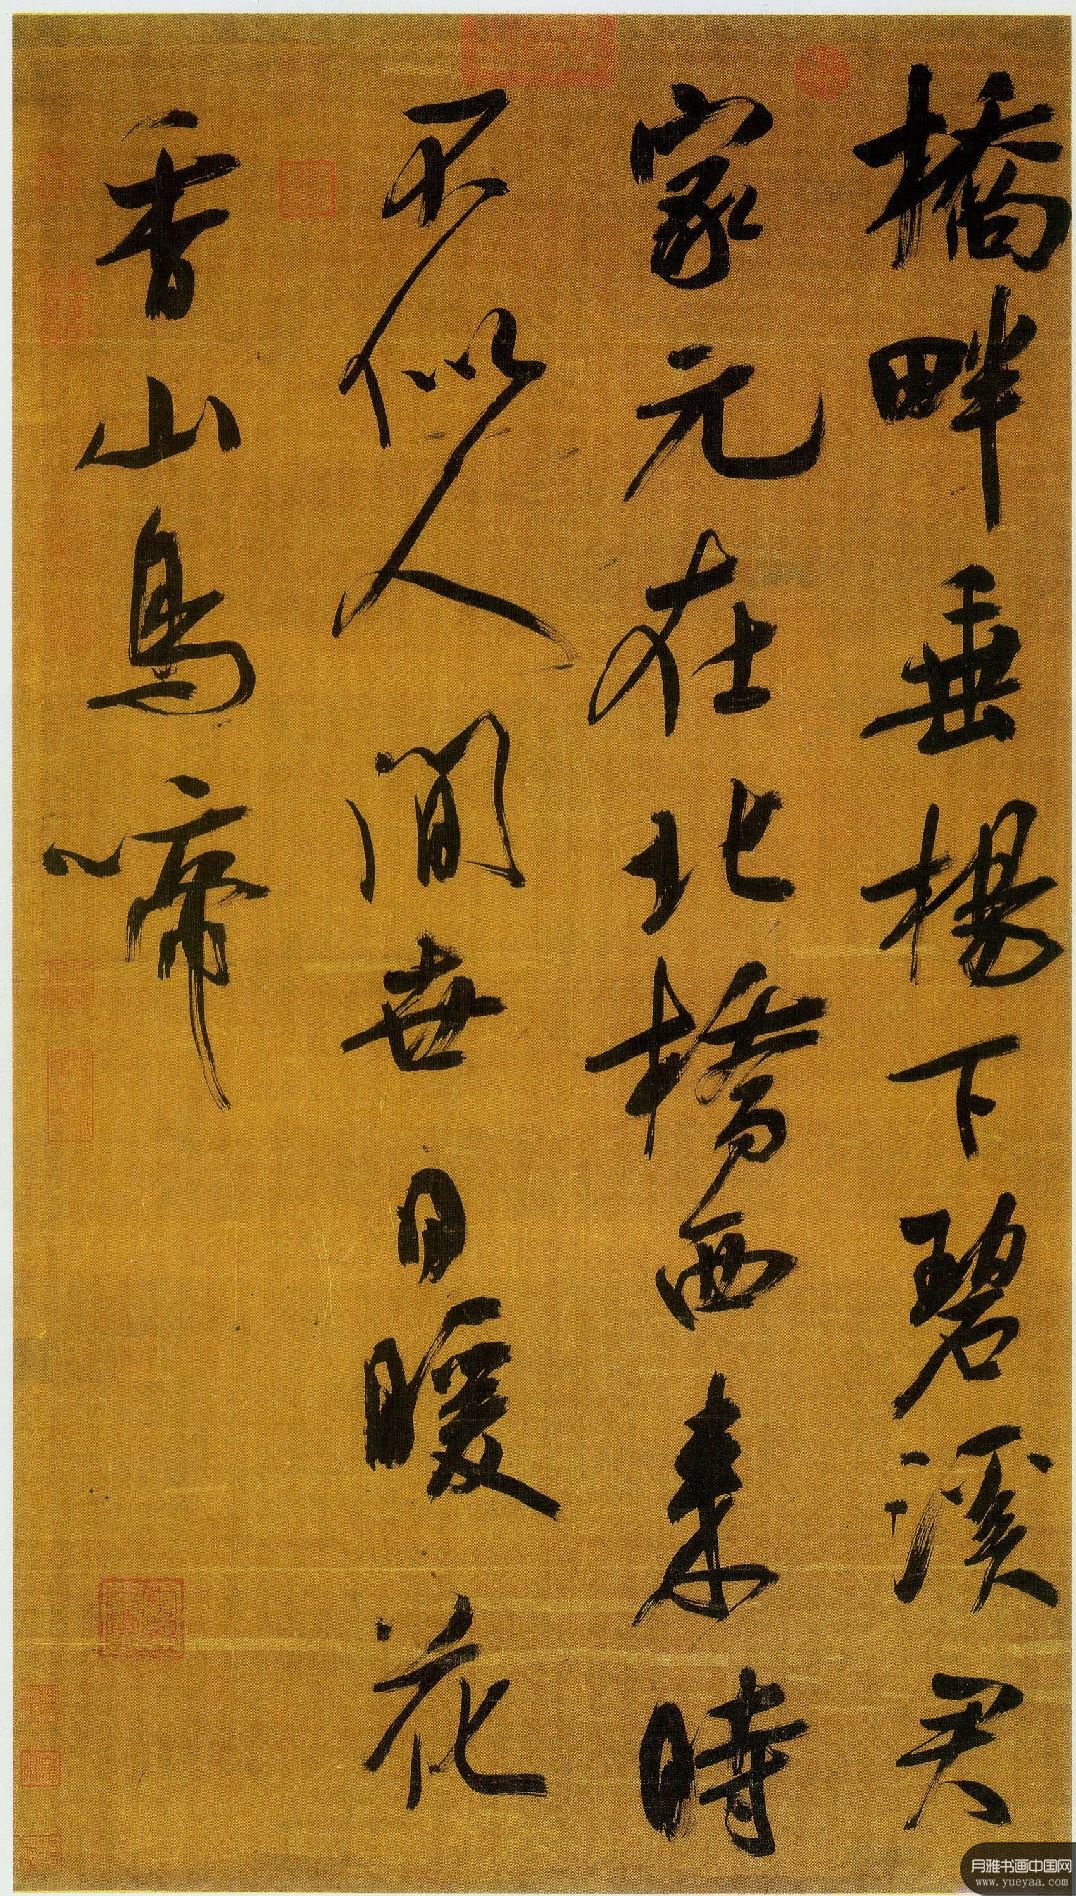 橋畔垂楊下碧溪君
家元在北橋西来時
不似人間世日暖花
香山鳥啼
月雅书画中国网
www.yueyaa.com